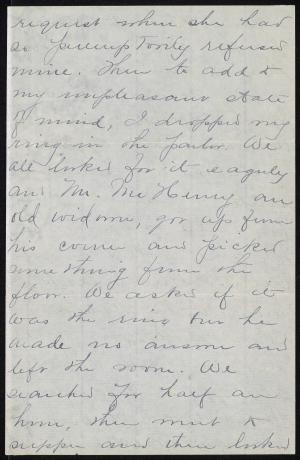 request when she had
so peremptorily refused
mine. Then to add to
my unpleasant state
of mind, I dropped my
ring in the parlor. We
all looked for it eagerly
and Mr. McHenry an
old widower, got up from
his corner and picked
something from the
floor. We asked if it
was the ring but he
made no answer and
left the room. We
searched for half an
hour, then went to
supper and then looked